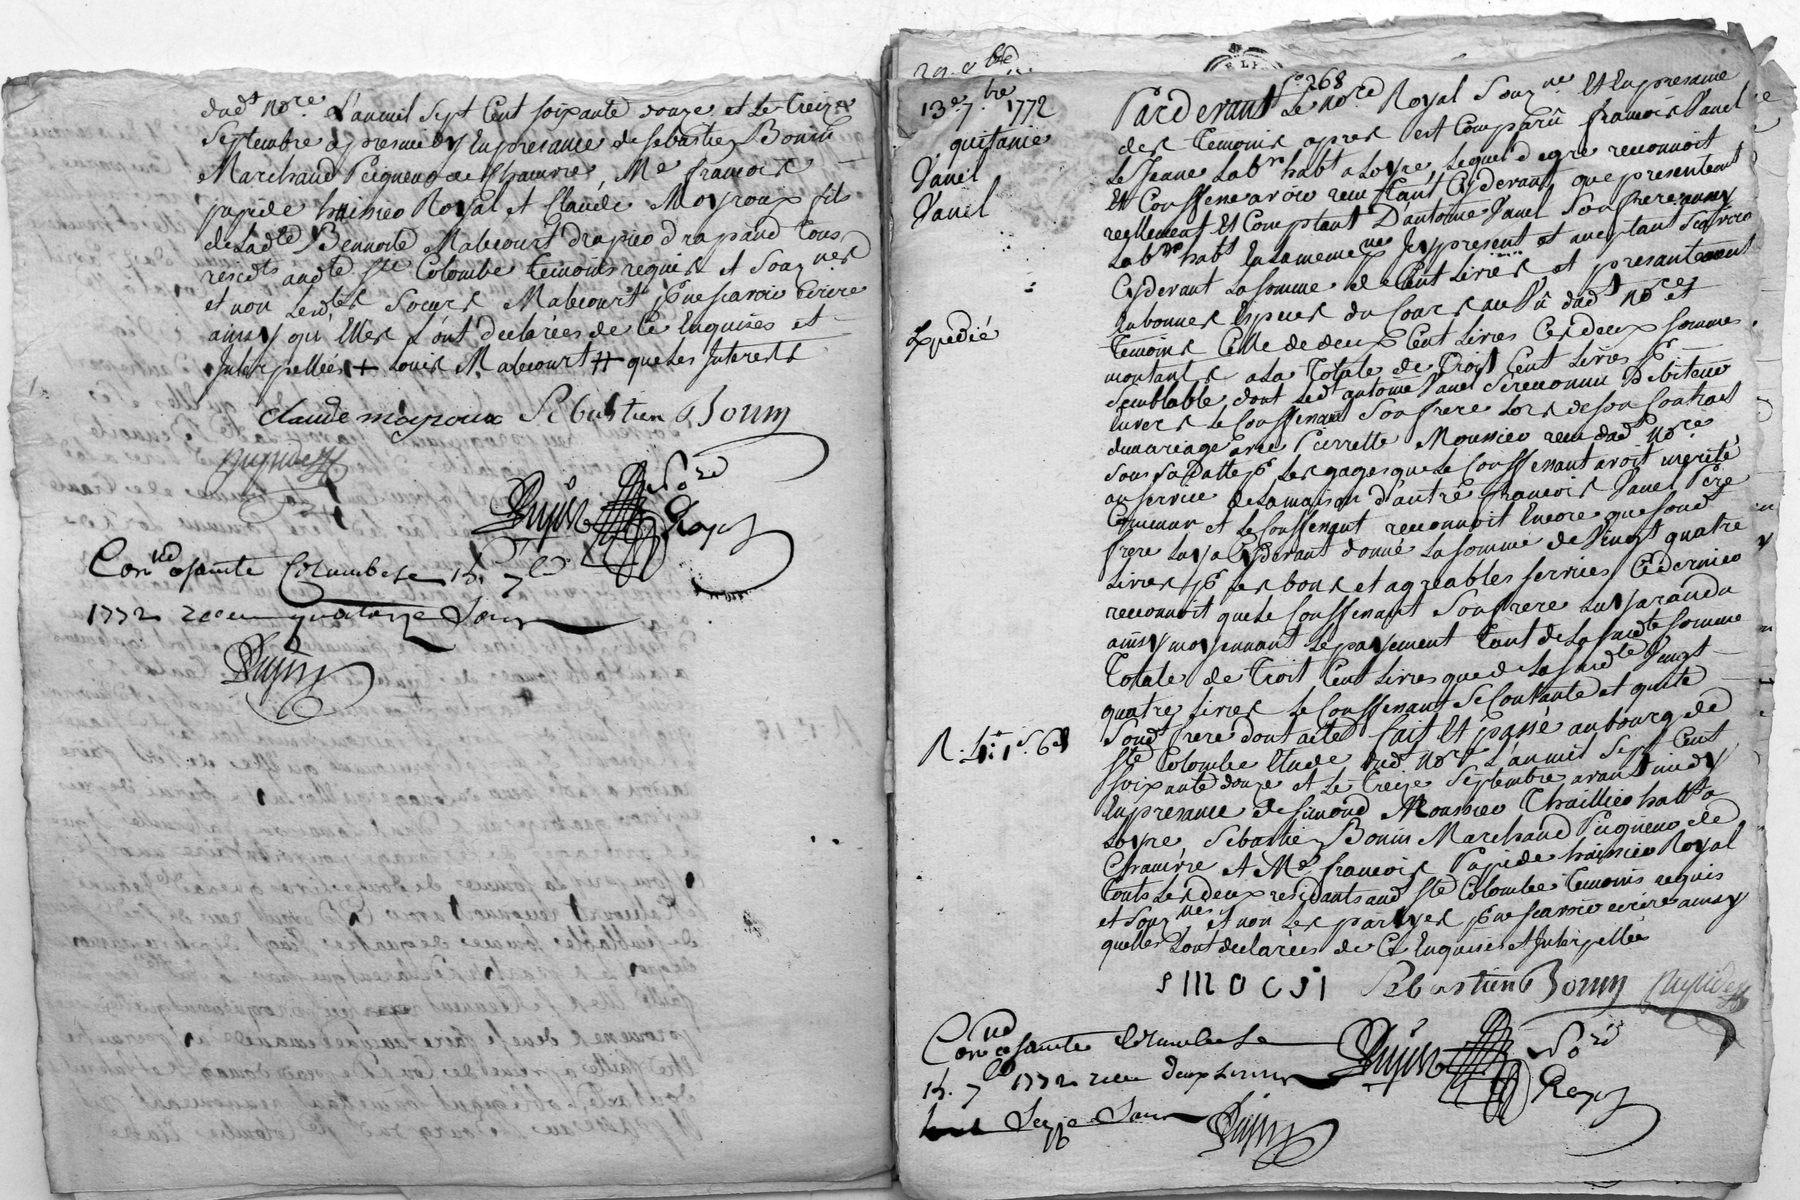 dudt no.re L'anmil Sept Cent soixante douze et le treize
Septembre apresmidy En presance de Sebastien Bonin
Marchand Peigneur de Chanvre, Me francois
papide huissier Royal et Claude Moyroux fils
de Ladte Bennoite Malecourt drapier drapand tous
resedts audte Ste Colombe temoins requis et Souz.nes
et non Lesd.tes Soeurs Malecourt pr ne scavoir Ecrire
ainsy qu'Elles L'ont declarées de Ce Enquises et
Interpellées + Louise Malecourt # que Les Interests
Claude moyroux Sebastien Bonin
papide
Dujin No.re
Royal
Con.lé a sainte Colombe le 15. 7bre
1772 receu quatorze Sous
Dujin
29. 8bre
fo 268
13e 7.bre 1772
quitance
Vanel
Vanel
Expédié
R. 4: 1s. 6ds
Pardevant Le no.re Royal Souz.ne Et En presance
des temoins apres Est Comparû francois Vanel
Le Jeune Lab.r hab.t a Loyre, Lequel de gre reconnoit
Et Confesse avoir reçu tant Cydevant que presentent
reellement Et Comptant D'antoine Vanel Son frere ainsy
Lab.r hab.t En la meme Jcy present et acceptant Scavoir
Cydevant La somme de Cent Livres et presantement
En bonnes Especes du Cours au Vû dudt No.re et
temoins Celle de deux Cent Livres Ces deux sommes
montants a La totale de troit Cent Livres pr
semblable dont Ledt antoine Vanel S'e reconnu debiteur
Envers Le Conffesant Son frere Lors de Son Contract
de mariage avec Pierrette Moussier recu dudt No.re
Sous Sa datte pr Les gages que Le Conffesant avoit merité
au service de La maison d'autre francois Vanel Pere
Commun et Le Conffesant reconnoit Encore que Sondt
frere Luy a Cydevant donné La Somme de Vingt quatre
Livres pr Les bons et agreables services Ce dernier
reconnoit que Le Conffesant Son frere Luy a rendu
ainsy moyennant Le payement tant de La Susdte Somme
totale de troit Cent Livres que de La Susdte Vingt
quatre Livres Le Conffesant Se Contante et quitte
Sondt frere dont acte fait Et passé au bourg de
Ste Colombe Etude dudt No.re L'an mil Sept Cent
Soixante douze et Le treize Septembre avant midy
En presance de Simond Moussier thaillier hab.t a
Loyre Sebastien Bonin Marchand Peigneur de
Chanvre et Me francois Papide huissier Royal
touts Les deux residants audt Ste Colombe temoins requis
et Souz.nes et non Les partyes pr ne scavoir ecrire ainsy
quelles L'ont declarées de Ce Enquises et Interpellée
Sebastien Bonin papide
Dujin No.re
Royal
Con.lé a sainte Colombe le
15. 7bre 1772 receu deux Livres
Seize Sous
Dujin